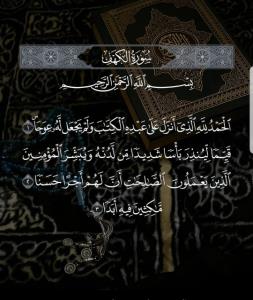 سُورَةُ الكَهْفِ
بِسْمِ ٱللَّهِ ٱلرَّحْمَٰنِ ٱلرَّحِيمِ
ٱلْحَمْدُ لِلَّهِ ٱلَّذِىٓ أَنزَلَ عَلَىٰ عَبْدِهِ ٱلْكِتَٰبَ وَلَمْ يَجْعَل لَّهُۥ عِوَجَا ۜ ١
قَيِّمًا لِّيُنذِرَ بَأْسًا شَدِيدًا مِّن لَّدُنْهُ وَيُبَشِّرَ ٱلْمُؤْمِنِينَ
ٱلَّذِينَ يَعْمَلُونَ ٱلصَّٰلِحَٰتِ أَنَّ لَهُمْ أَجْرًا حَسَنًا ٢
مَّٰكِثِينَ فِيهِ أَبَدًا ٣